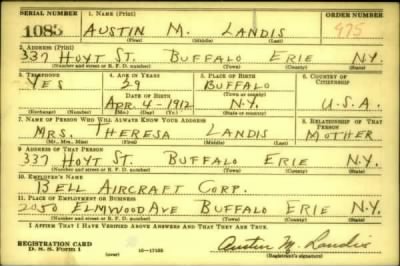 SERIAL NUMBER 1. NAME (Print) ORDER NUMBER
1083 AUSTIN M. LANDIS 475
(First) (Middle) (Last)
2. ADDRESS (Print)
337 HOYT ST. BUFFALO ERIE N.Y.
(Number and street or R. F. D. number) (Town) (County) (State)
3. TELEPHONE 4. AGE IN YEARS 5. PLACE OF BIRTH 6. COUNTRY OF CITIZENSHIP
YES 29 BUFFALO
DATE OF BIRTH (Town or county)
APR. 4-1912 N.Y. U.S.A.
(Exchange) (Number) (Mo.) (Day) (Yr.) (State or country)
7. NAME OF PERSON WHO WILL ALWAYS KNOW YOUR ADDRESS 8. RELATIONSHIP OF THAT PERSON
MRS. THERESA LANDIS MOTHER
(Mr., Mrs., Miss) (First) (Middle) (Last)
9. ADDRESS OF THAT PERSON
337 HOYT ST. BUFFALO ERIE N.Y.
(Number and street or R. F. D. number) (Town) (County) (State)
10. EMPLOYER'S NAME
BELL AIRCRAFT CORP.
11. PLACE OF EMPLOYMENT OR BUSINESS
2050 ELMWOOD AVE BUFFALO ERIE N.Y.
(Number and street or R. F. D. number) (Town) (County) (State)
I AFFIRM THAT I HAVE VERIFIED ABOVE ANSWERS AND THAT THEY ARE TRUE.
REGISTRATION CARD
D. S. S. Form 1 (over) 16-17105 Austin M. Landis
(Registrant's signature)